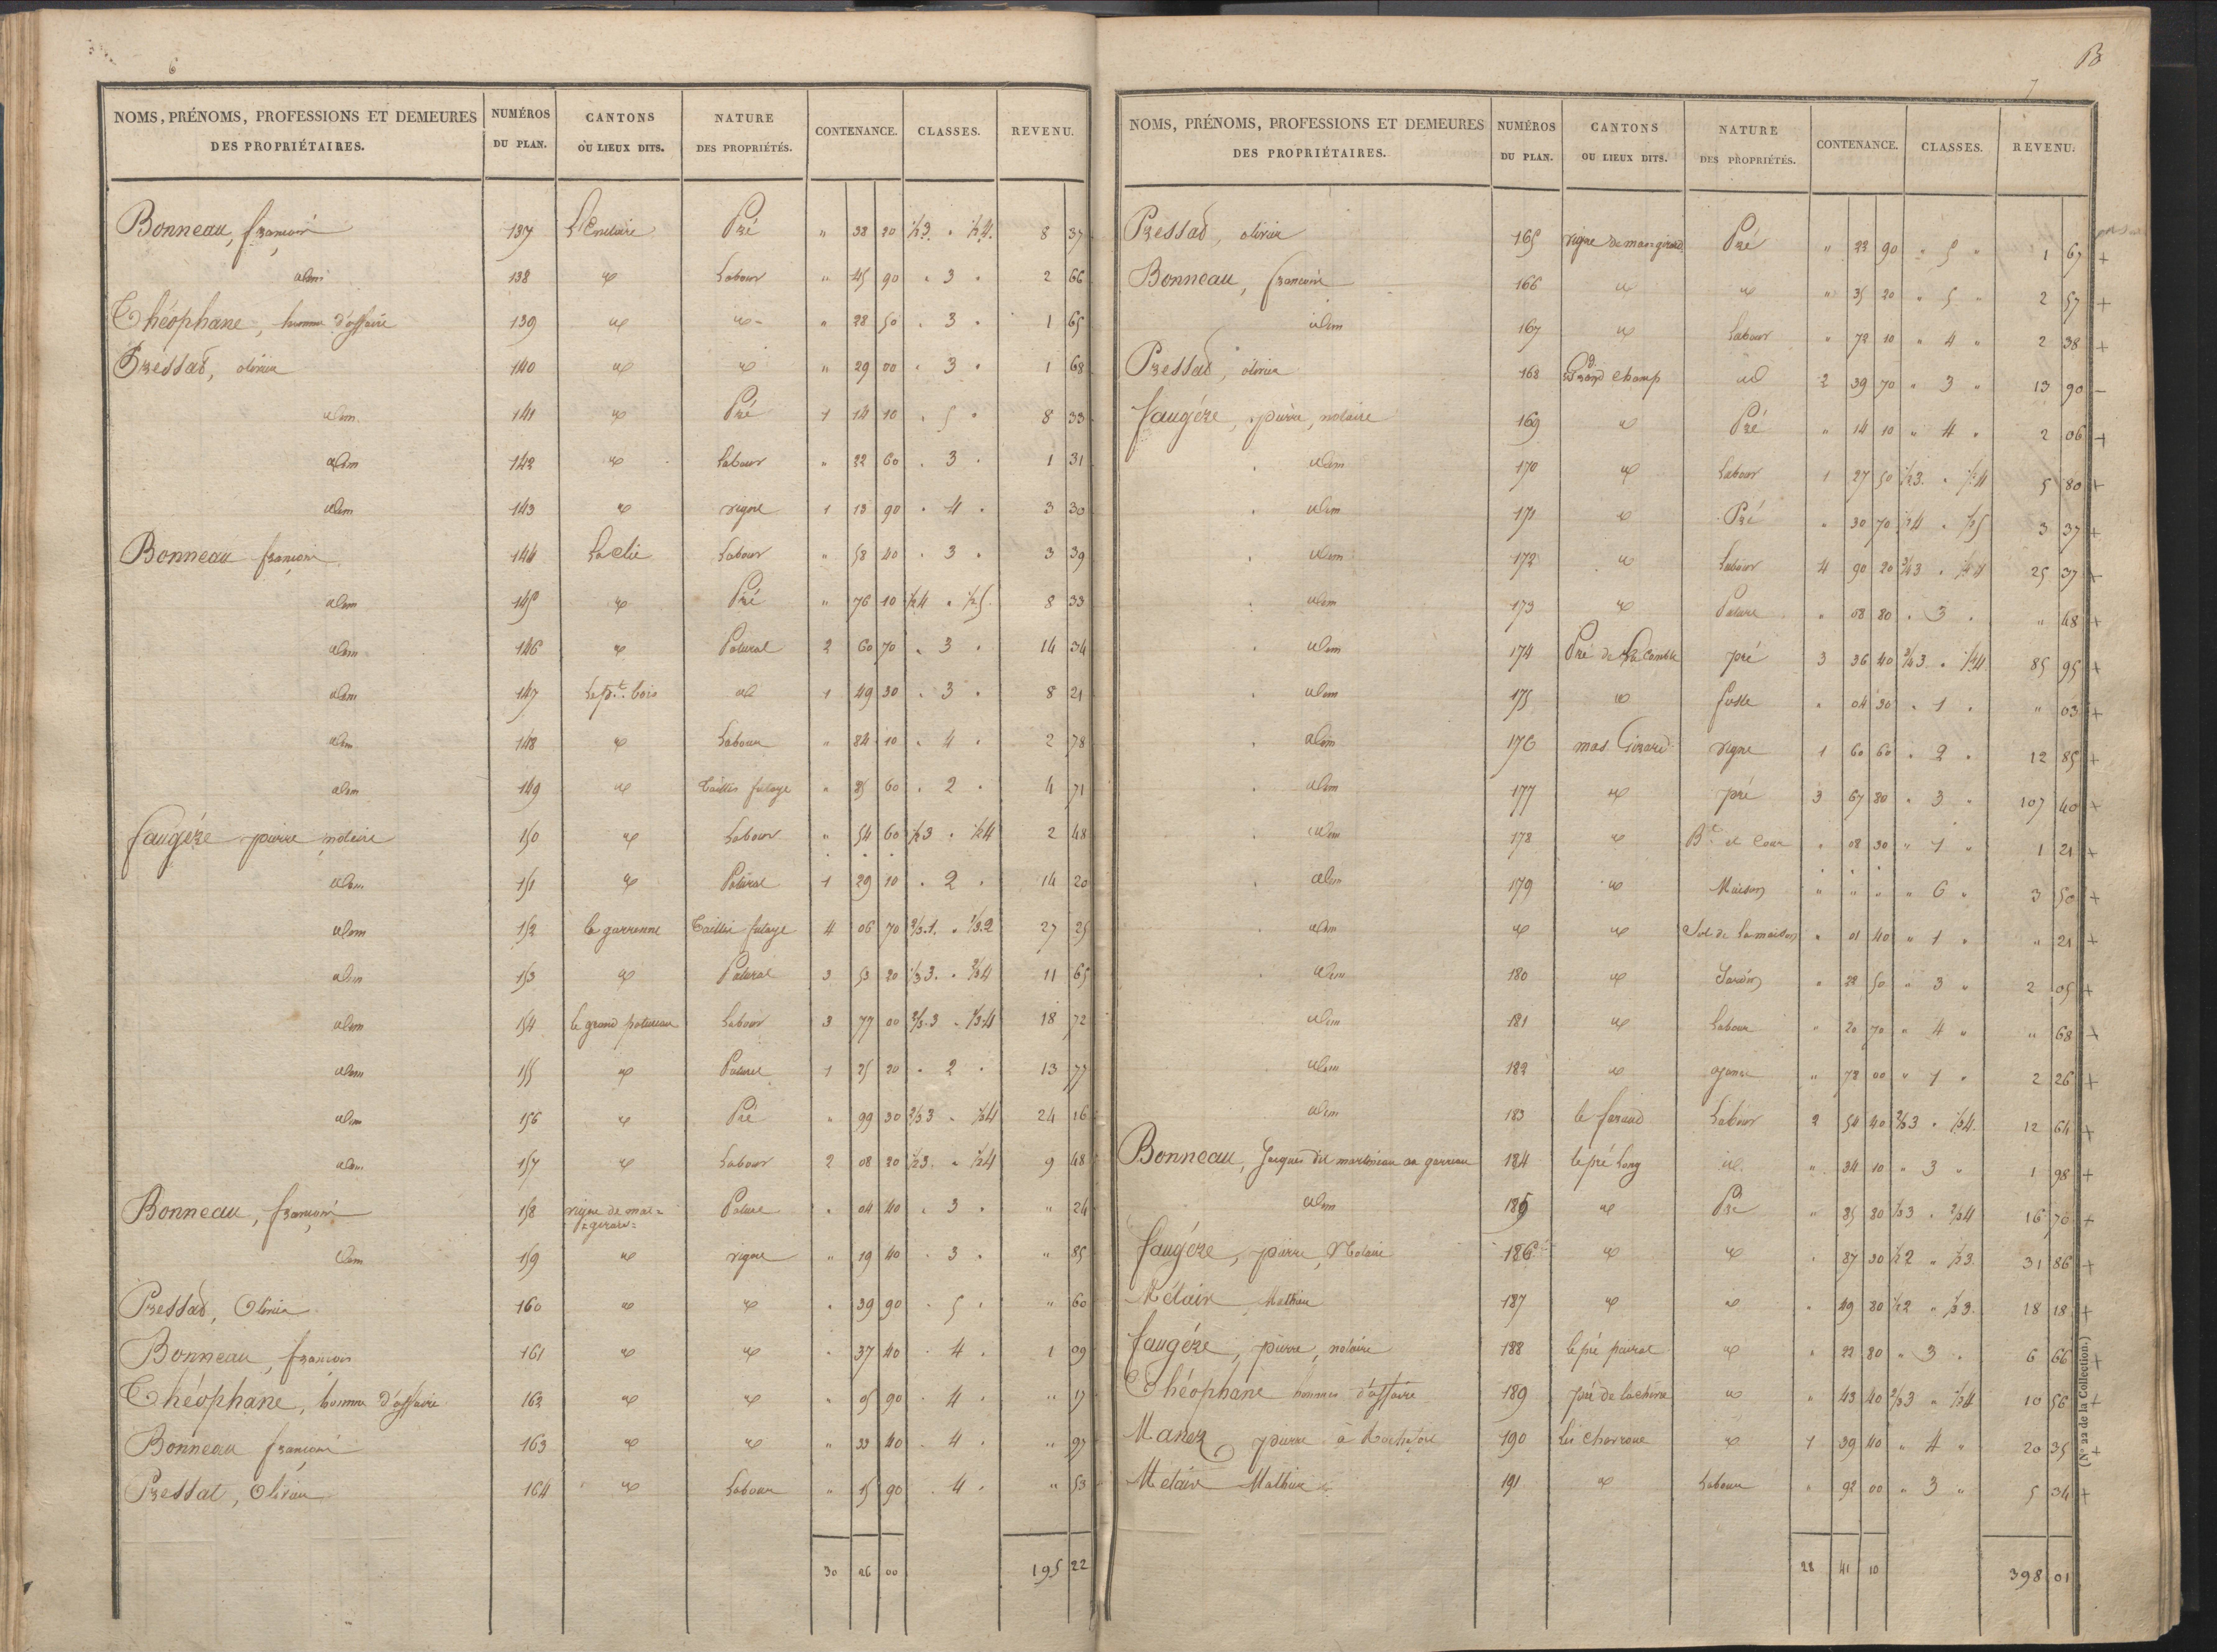 6
NOMS, PRÉNOMS, PROFESSIONS ET DEMEURES DES PROPRIÉTAIRES. NUMÉROS DU PLAN. CANTONS OU LIEUX DITS. NATURE DES PROPRIÉTÉS. CONTENANCE. CLASSES. REVENU.
Bonneau, françois 137 Pré " 38 20 1/2 3. " 1/2 4. 8 37
idem 138 id Labour " 45 90 " 3 " 2 66
Théophane, homme d'affaire 139 id id " 28 50 " 3 " 1 65
Pressat, olivier 140 id id " 29 00 " 3 " 1 68
idem 141 id Pré 1 14 10 " 5 " 8 33
idem 142 id Labour " 22 60 " 3 " 1 31
idem 143 id vigne 1 13 90 " 4 " 3 30
Bonneau françois 144 Labour " 58 40 " 3 " 3 39
idem 145 id Pré " 76 10 1/2 4 " 1/2 5. 8 33
idem 146 id Patural 2 60 70 " 3 " 14 34
idem 147 le pt. bois id 1 49 30 " 3 " 8 21
idem 148 id Labour " 84 10 " 4 " 2 78
idem 149 id Taillis futaye " 85 60 " 2 " 4 71
faugére pierre notaire 150 id Labour " 54 60 1/2 3 " 1/2 4 2 48
idem 151 id Patural 1 29 10 " 2 " 14 20
idem 152 la garrenne Taillis futaye 4 06 70 2/3.1. " 1/3.2 27 25
idem 153 id Patural 3 53 20 1/3 3. " 2/3 4 11 65
idem 154 le grand patureau Labour 3 77 00 2/3.3 " 1/3.4 18 72
idem 155 id Patural 1 25 20 " 2 " 13 77
idem 156 id Pré " 99 30 2/3 3 " 1/3 4 24 16
idem 157 id Labour 2 08 20 1/2 3. " 1/2 4 9 48
Bonneau, françois 158 vigne de mas = Pature " 04 40 " 3 " " 24
= girard =
idem 159 id vigne " 19 40 " 3 " " 85
Pressat, Olivier 160 id id " 39 90 " 5 " " 60
Bonneau, françois 161 id id " 37 40 " 4 " 1 09
Théophane, homme d'affaire 162 id id " 05 90 " 4 " " 17
Bonneau françois 163 id id " 33 40 " 4 " " 97
Pressat, Olivier 164 id Labour " 15 90 " 4 " " 53
30 26 00 195 22
B
7
NOMS, PRÉNOMS, PROFESSIONS ET DEMEURES DES PROPRIÉTAIRES. NUMÉROS DU PLAN. CANTONS OU LIEUX DITS. NATURE DES PROPRIÉTÉS. CONTENANCE. CLASSES. REVENU.
Pressat, olivier 165 vigne de mas girard Pré " 22 90 " 5 " 1 67 +
Bonneau, françois 166 id id " 35 20 " 5 " 2 57 +
idem 167 id Labour " 72 10 " 4 " 2 38 +
Pressat, olivier 168 Grand champ id 2 39 70 " 3 " 13 90 –
faugére, pierre, notaire 169 id Pré " 14 10 " 4 " 2 06 +
idem 170 id Labour 1 27 50 1/2 3. " 1/2 4 5 80 +
idem 171 id Pré " 30 70 1/2 4 " 1/2 5 3 37 +
idem 172 id Labour 4 90 20 2/3 3 " 1/3 4 25 37 +
idem 173 id Pature " 08 80 " 3 " " 48 +
idem 174 Pré de la Combe pré 3 36 40 2/3 3 " 1/3 4 85 95 +
idem 175 id 04 30 " 1 " " 03 +
idem 176 mas Girard vigne 1 60 60 " 2 " 12 85 +
idem 177 id pré 3 67 80 " 3 " 107 40 +
idem 178 id Bt et Cour " 08 30 " 1 " 1 21 +
idem 179 id Maison " " " " 6 " 3 50 +
idem id id Sol de la maison " 01 40 " 1 " " 21 +
idem 180 id Jardin " 22 50 " 3 " 2 05 +
idem 181 id Labour " 20 70 " 4 " " 68 +
idem 182 id " 72 00 " 1 " 2 26 +
idem 183 le feraud Labour 2 54 40 2/3 3 " 1/3 4. 12 64 +
Bonneau, Jacques dit martineau au garreau 184 le pré Long id. " 34 10 " 3 " 1 98 +
idem 185 id Pré " 85 80 1/3 3 " 2/3 4 16 70 +
faugére, pierre, Notaire 186 id id " 87 30 1/2 2 " 1/2 3. 31 86 +
Métair, Mathieu 187 id id " 49 80 1/2 2 " 1/2 3. 18 18 +
faugére, pierre, notaire 188 le pré id " 22 80 " 3 " 6 66 +
Théophane hommes d'affaire 189 pré de id " 43 40 2/3 3 " 1/3 4 10 56 +
pierre à Rochefort 190 id 1 39 40 " 4 " 20 35 +
Métair Mathieu 191 id Labour " 92 00 " 3 " 5 34 +
28 41 10 398 01
(N° 22 de la Collection.)